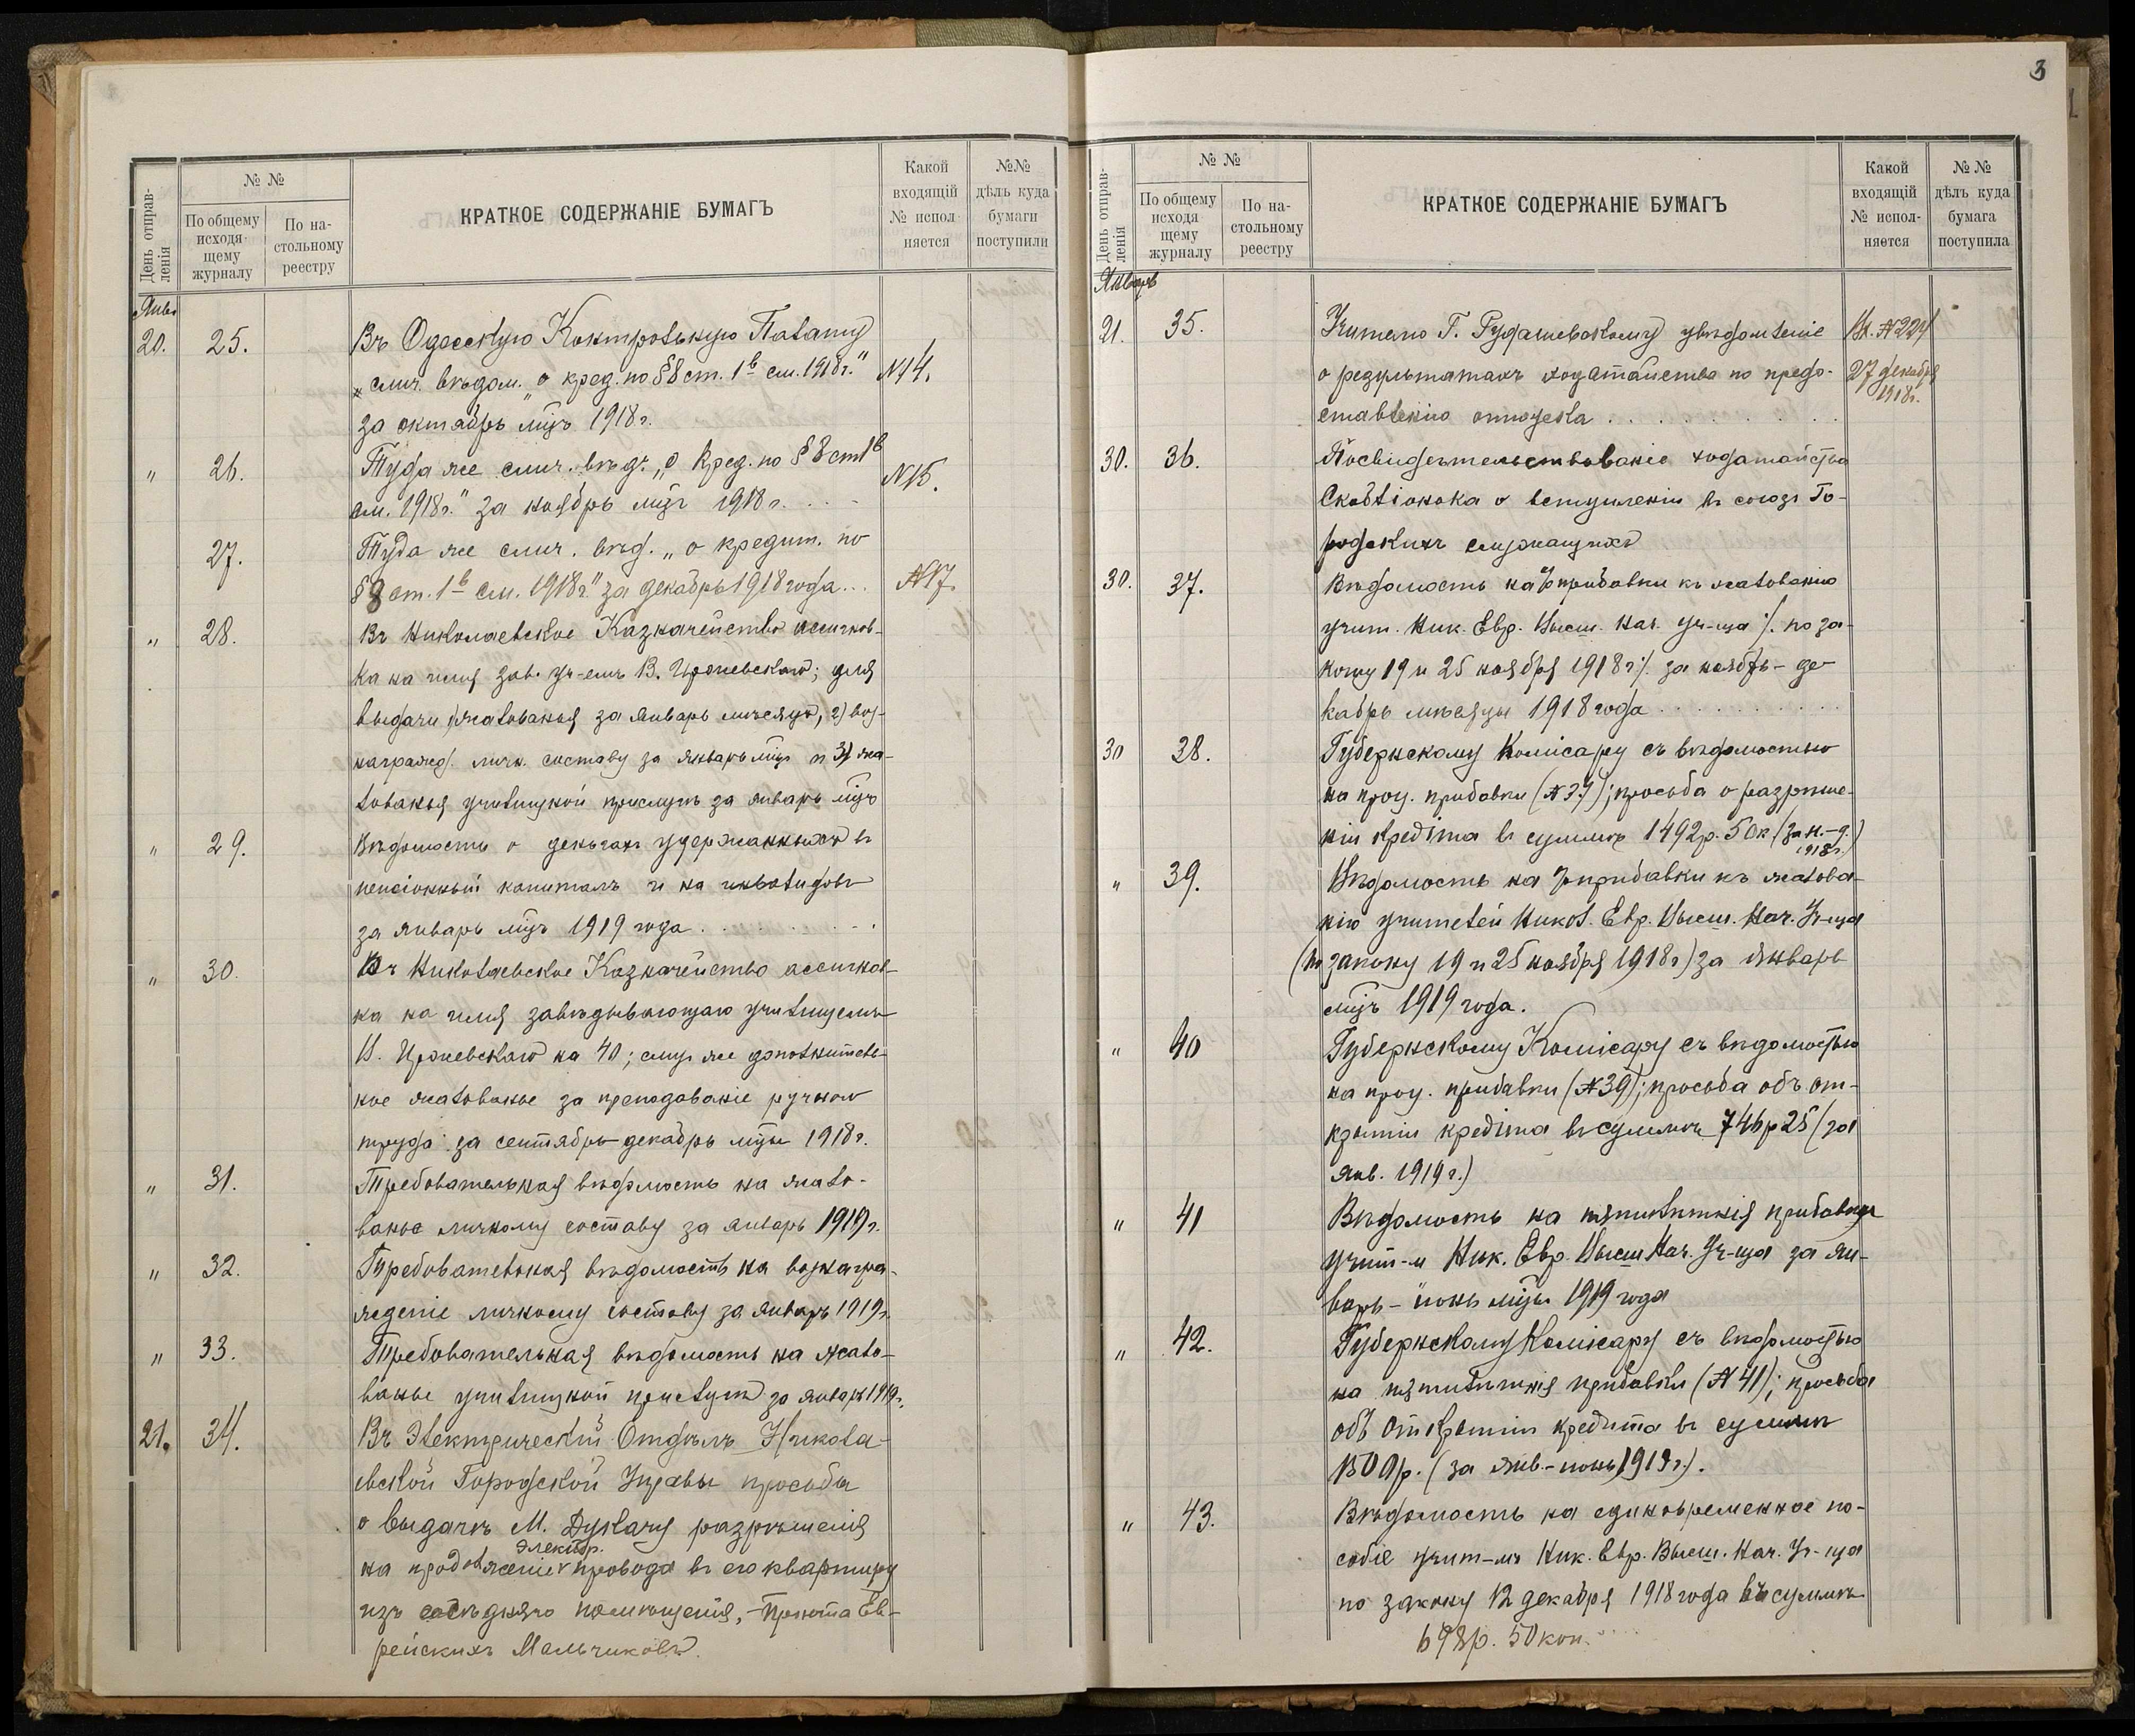 День отправ-
ленія
№ №
По общему
исходя-
щему
журналу
По на-
стольному
реестру
КРАТКОЕ СОДЕРЖАНІЕ БУМАГЪ
Какой
входящій
№ испол-
няется
№№
дѣлъ куда
бумаги
поступили
Янв.
20. 25. Въ Одесскую Контрольную Палату
„слич. вѣдом. „о кред. по § 8 ст. 1б см. 1918 г." №14.
за октябрь мцъ 1918 г.
" 26. Туда же слич. вѣд. „о кред. по § 8 ст 1б
см. 1918 г." за ноябрь мцъ 1918 г. №15.
27. Туда же слич. вѣд. „о кредит. по
§ 8 ст. 1б см. 1918 г." за декабрь 1918 года... №17.
" 28. Въ Николаевское Казначейство ассигнов-
ка на имя зав. уч-емъ В. Иржевскаго; для
выдачи 1) жалованья за январь мѣсяцъ, 2) воз-
награжд. личн. составу за январь мцъ и 3) жа-
лованья училищной прислугѣ за январь мцъ
" 29. Вѣдомость о деньгахъ удержанныхъ въ
пенсіонный капиталъ и на инвалидовъ
за январь мцъ 1919 года
" 30. Въ Николаевское Казначейство ассигнов-
ка на имя завѣдывающаго училищемъ
В. Иржевскаго на 40; ему же дополнитель-
ное жалованье за преподаваніе ручного
труда за сентябрь-декабрь мцы 1918 г.
" 31. Требовательная вѣдомость на жало-
ванье личному составу за январь 1919 г.
" 32. Требовательная вѣдомость на вознагра-
жденіе личному составу за январь 1919 г.
" 33. Требовательная вѣдомость на жало-
ванье училищной прислугѣ за январь 1919 г.
21. 34. Въ Электрическій Отдѣлъ Никола-
евской Городской Управы просьба
о выдачѣ М. Дуклачу разрѣшенія
электр.
на продолженіе провода въ его квартиру
изъ сосѣдняго помѣщенія, - Пріюта Ев-
рейскихъ Мальчиковъ.
3
День отправ-
ленія
№ №
По общему
исходя
щему
журналу
По на-
стольному
реестру
КРАТКОЕ СОДЕРЖАНІЕ БУМАГЪ
Какой
входящій
№ испол-
няется
№ №
дѣлъ куда
бумага
поступила
Январь
21. 35. Учителю Г. Рудашевскому увѣдомленіе Вх. №224
о результатахъ ходатайства по предо- 27 декабря
ставленію отпуска 1918 г.
30. 36. Посвидѣтельствованіе ходатайства
о вступленіи въ союзъ Го-
родскихъ служащихъ
30. 37. Вѣдомость на % прибавки къ жалованію
учит. Ник. Евр. Высш. Нач. Уч-ща /. по за-
кону 19 и 25 ноября 1918 г./. за ноябрь - де-
кабрь мѣсяцы 1918 года
30 38. Губернскому Комісару съ вѣдомостью
на проц. прибавки (№37); просьба о разрѣше-
ніи кредіта въ суммѣ 1492 р. 50 к (за н.-д.
1918 г.)
" 39. Вѣдомость на % прибавки къ жалова-
нію учителей Никол. Евр. Высш. Нач. Уч-ща
(по закону 19 и 25 ноября 1918 г) за январь
мцъ 1919 года.
" 40 Губернскому Комісару съ вѣдомостью
на проц. прибавки (№39); просьба объ от-
крытіи кредіта въ суммѣ 746 р 25 (за
янв. 1919 г.)
" 41 Вѣдомость на пятилѣтнія прибавки
учит-м Ник. Евр. Высш Нач. Уч-ща за ян-
варь - іюнь мцы 1919 года
" 42. Губернскому Комісару съ вѣдомостью
на пятилѣтнія прибавки (№41); просьба
объ открытіи кредита въ суммѣ
1500 р. (за янв.-іюнь 1919 г.).
" 43. Вѣдомость на единовременное по-
собіе учит-мъ Ник. Евр. Высш. Нач. Уч-ща
по закону 12 декабря 1918 года въ суммѣ
698 р. 50 коп.